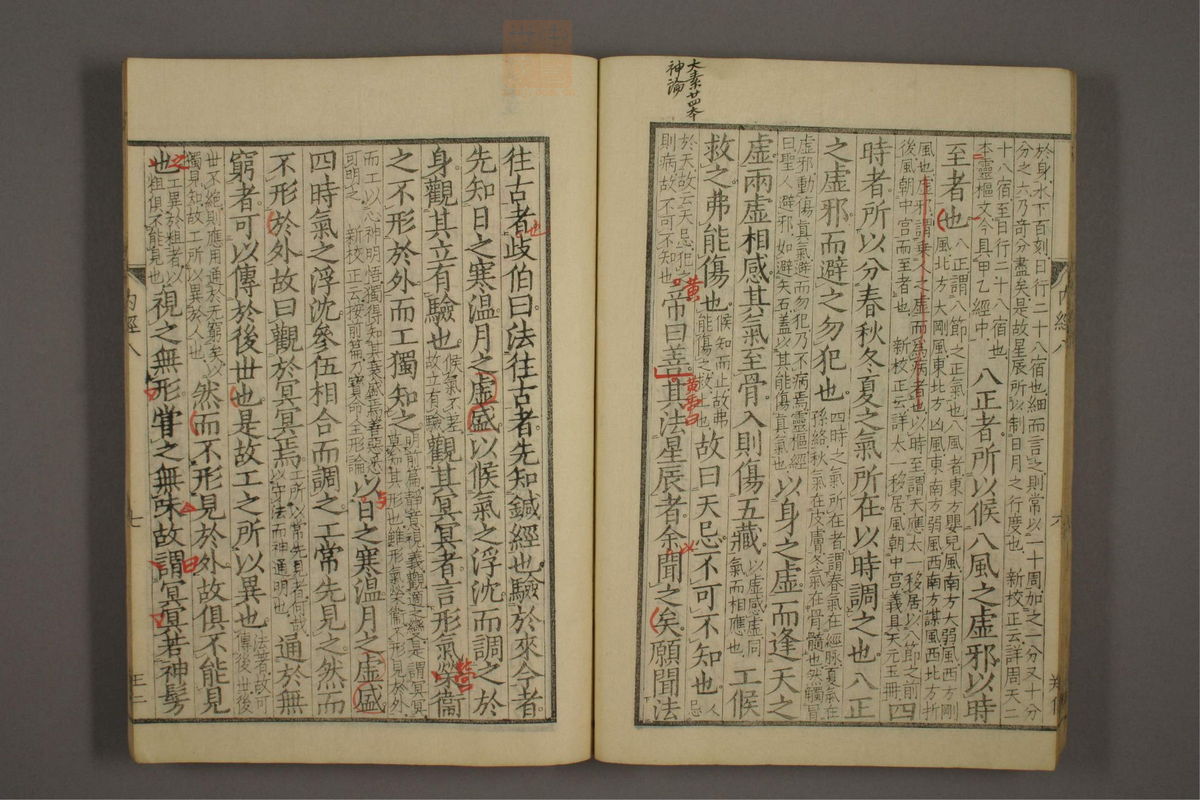 大素廿四本
神論
於身水下百刻日行二十八宿也細而言之則常以一十周加之一分又十分
分之六乃奇分盡矣是故星辰所以制日月之行度也 新校正云詳周天二
十八宿至日行二十八宿也
本靈樞文今具甲乙經中
八正者所以候八風之虛邪以時
至者也
八正謂八節之正氣也八風者東方嬰兒風南方大弱風西方剛
風北方大剛風東北方凶風東南方弱風西南方謀風西北方折
風也虛邪謂乘人之虛而為病者也以時至謂天應太一移居以八節之前
後風朝中宮而至者也 新校正云詳太一移居風朝中宮義具天元玉冊
四
時者所以分春秋冬夏之氣所在以時調之也八正
之虛邪而避之勿犯也
四時之氣所在者謂春氣在經脉夏氣在
孫絡秋氣在皮膚冬氣在骨髓也然觸冒
虛邪動傷真氣避而勿犯乃不病焉靈樞經
曰聖人避邪如避矢石蓋以其能傷真氣也
以身之虛而逢天之
虛兩虛相感其氣至骨入則傷五藏
以虛感虛同
氣而相應也
工候
救之弗能傷也
候知而止故弗
能傷之救止也
故曰天忌不可不知也
人
忌
於天故云天忌犯之
則病故不可不知也
黃
帝曰善其法星辰者余聞之矣願聞法
內經八
六
往古者歧伯曰法往古者先知鍼經也驗於來今者
也
先知日之寒溫月之虛盛以候氣之浮沈而調之於
身觀其立有驗也
候氣不差
故立有驗
觀其冥冥者言形氣榮衞
營
之不形於外而工獨知之
明前篇靜意視義觀適之變是謂冥冥
莫知其形也雖形氣榮衞不形見於外
而工以心神明悟獨得知其衰盛焉善惡悉
可明之 新校正云按前篇乃寶命全形論
以日之寒溫月之虛盛
四時氣之浮沈參伍相合而調之工常先見之然而
不形於外故曰觀於冥冥焉
工所以常先見者何哉
以守法而神通明也
通於無
窮者可以傳於後世也是故工之所以異也
法著故可
傳後世後
世不絕則應用通於无窮矣以
獨見知故工所以異於人也
然而不形見於外故俱不能見
也
工異於粗者以
粗俱不能見也
視之無形甞之無味故謂冥冥若神髣
內經八
七